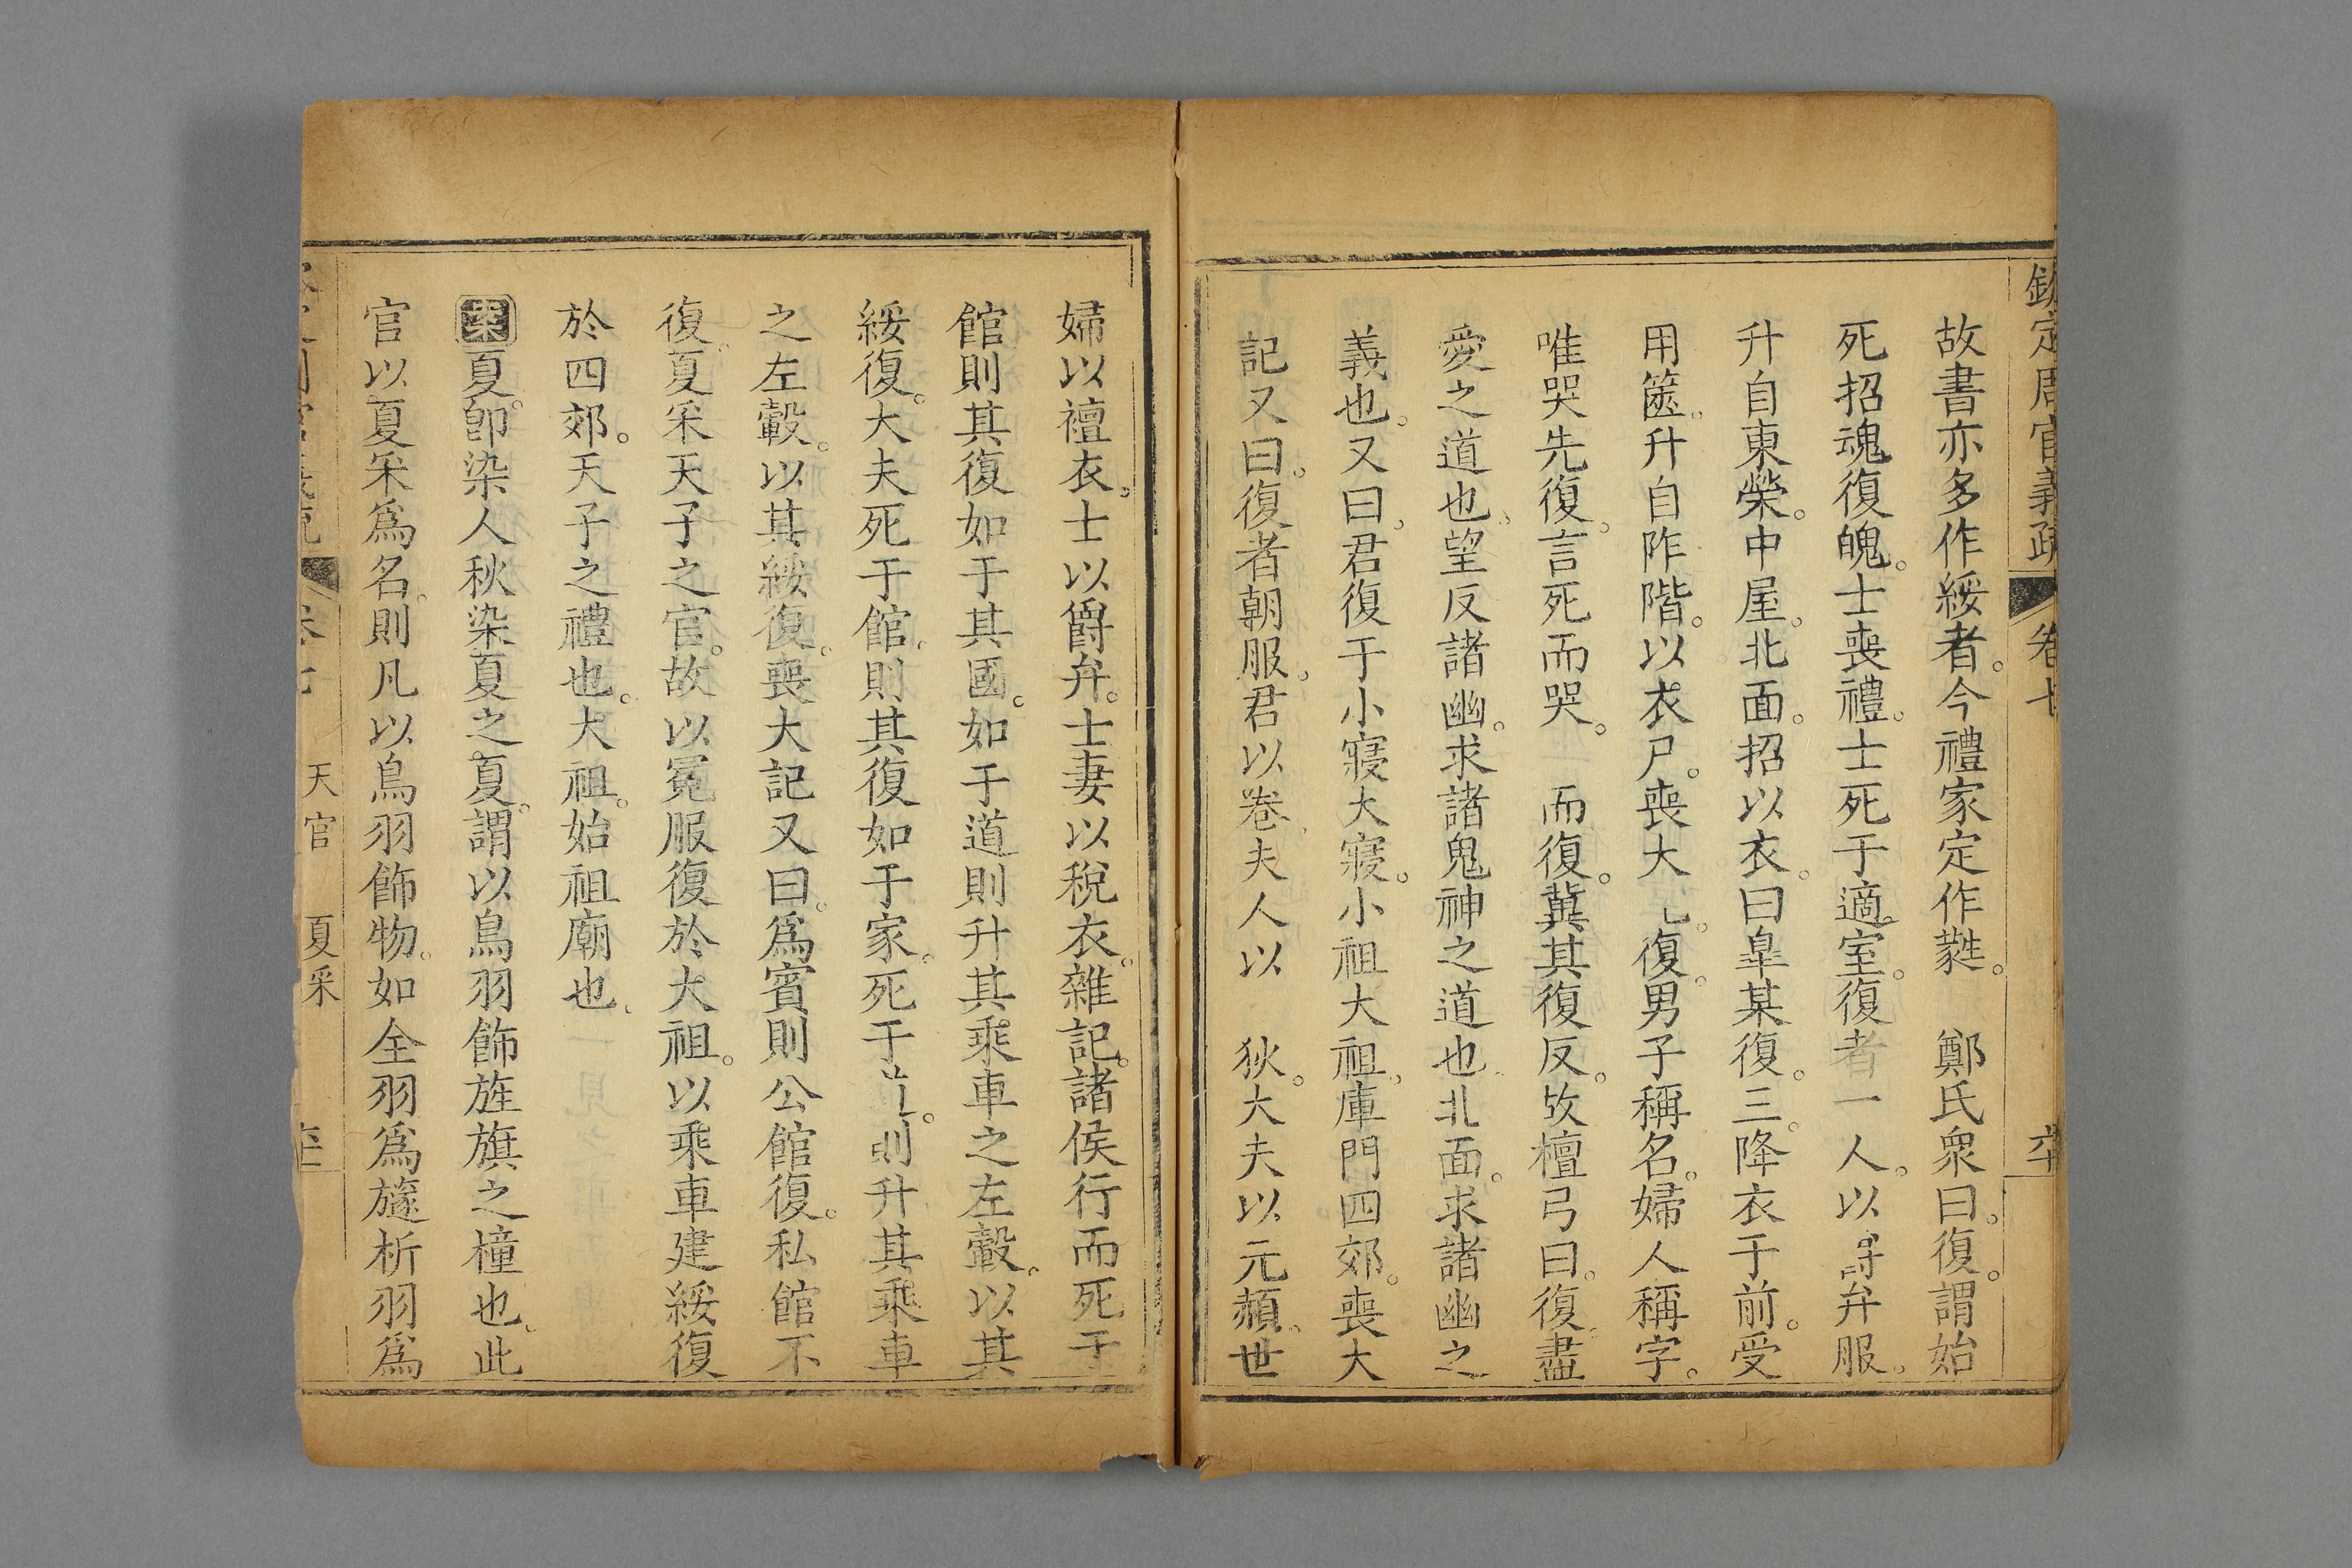 欽定周官義疏 卷七
故書亦多作綏者。今禮家定作蕤。 鄭氏衆曰。復。謂始
死招魂復魄。士喪禮。士死于適室。復者一人。以弁服。
升自東榮。中屋。北面。招以衣。曰皐某復。三。降衣于前。受
用篋。升自阼階。以衣尸。喪大。復。男子稱名。婦人稱字。
唯哭先復。言死而哭。 而復。冀其復反。攷檀弓曰。復。盡
愛之道也。望反諸幽。求諸鬼神之道也。北面。求諸幽之
義也。又曰。君復于小寢大寢。小祖大祖。庫門四郊。喪大
記又曰。復者朝服。君以卷。夫人以 狄。大夫以元赬。世
婦以襢衣。士以爵弁。士妻以稅衣。雜記。諸侯行而死于
館則其復如于其國。如于道則升其乘車之左轂。以其
綏復。大夫死于館。則其復如于家。死于。則升其乘車
之左轂。以其綏復。喪大記又曰。爲賓則公館復。私館不
復。夏采天子之官。故以冕服復於大祖。以乘車建綏復
於四郊。天子之禮也。大祖。始祖廟也。
案夏。卽染人秋染夏之夏。謂以鳥羽飾旌旗之橦也。此
官以夏采爲名。則凡以鳥羽飾物。如全羽爲旞析羽爲
天官 夏采